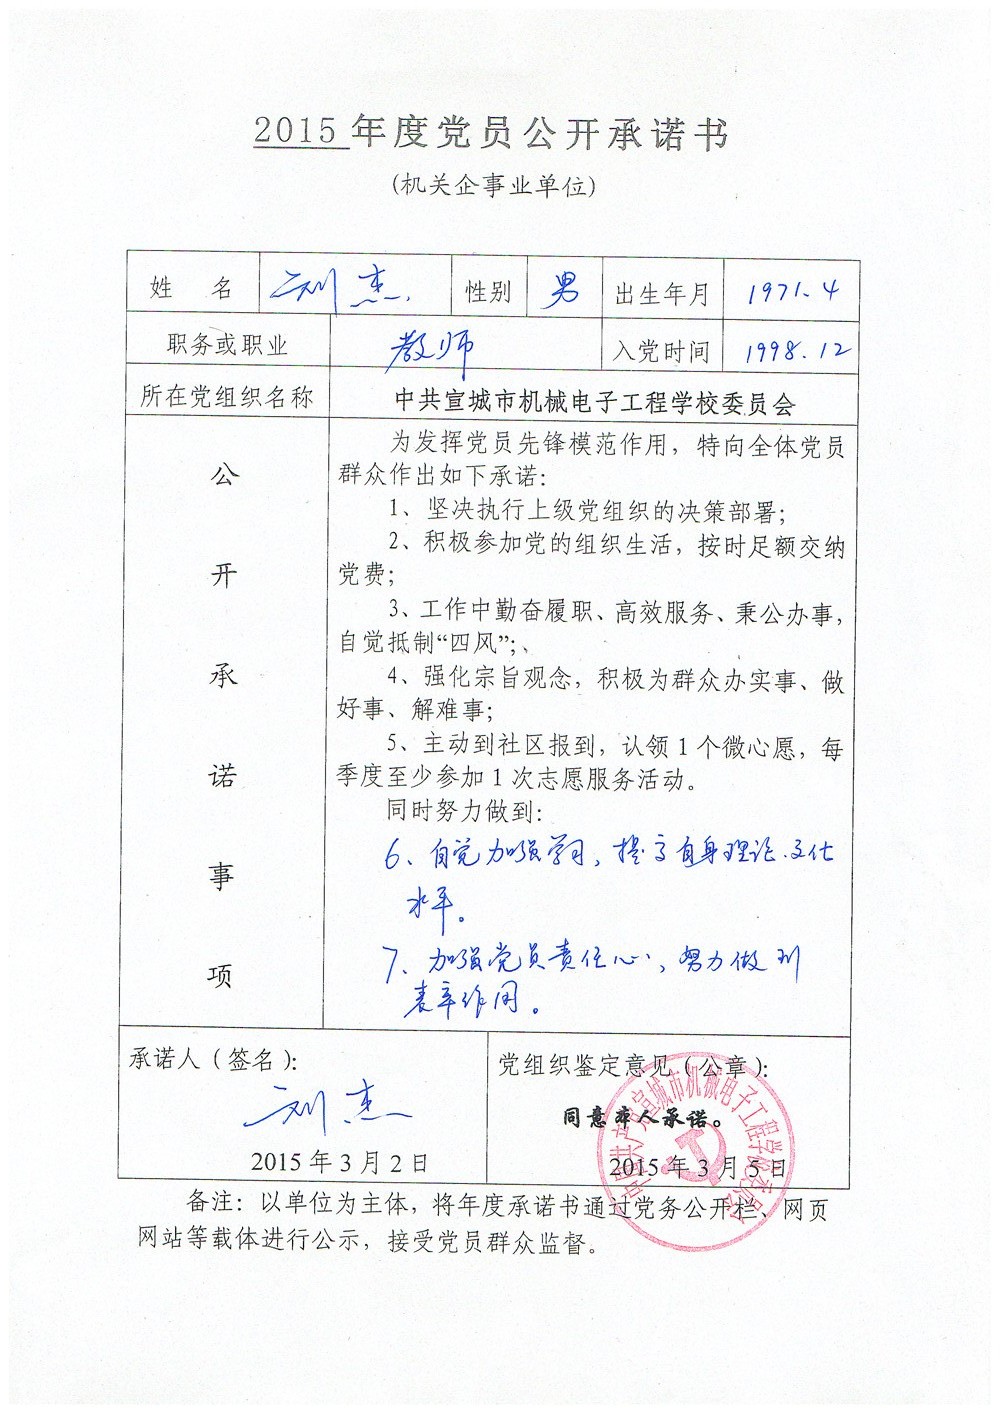 2015 年度党员公开承诺书
(机关企事业单位)
姓 名 刘杰 性别 男 出生年月 1971.4
职务或职业 教师 入党时间 1998.12
所在党组织名称 中共宣城市机械电子工程学校委员会
公开承诺事项
为发挥党员先锋模范作用，特向全体党员
群众作出如下承诺：
1、坚决执行上级党组织的决策部署；
2、积极参加党的组织生活，按时足额交纳
党费；
3、工作中勤奋履职、高效服务、秉公办事，
自觉抵制“四风”；、
4、强化宗旨观念，积极为群众办实事、做
好事、解难事；
5、主动到社区报到，认领 1 个微心愿，每
季度至少参加 1 次志愿服务活动。
同时努力做到：
6、自觉加强学习，提高自身理论、文化
水平。
7、加强党员责任心，努力做到
表率作用。
承诺人（签名）：
刘杰
2015 年 3 月 2 日
党组织鉴定意见（公章）：
同意本人承诺。
2015 年 3 月 5 日
中国共产党宣城市机械电子工程学校委员会
备注：以单位为主体，将年度承诺书通过党务公开栏、网页
网站等载体进行公示，接受党员群众监督。